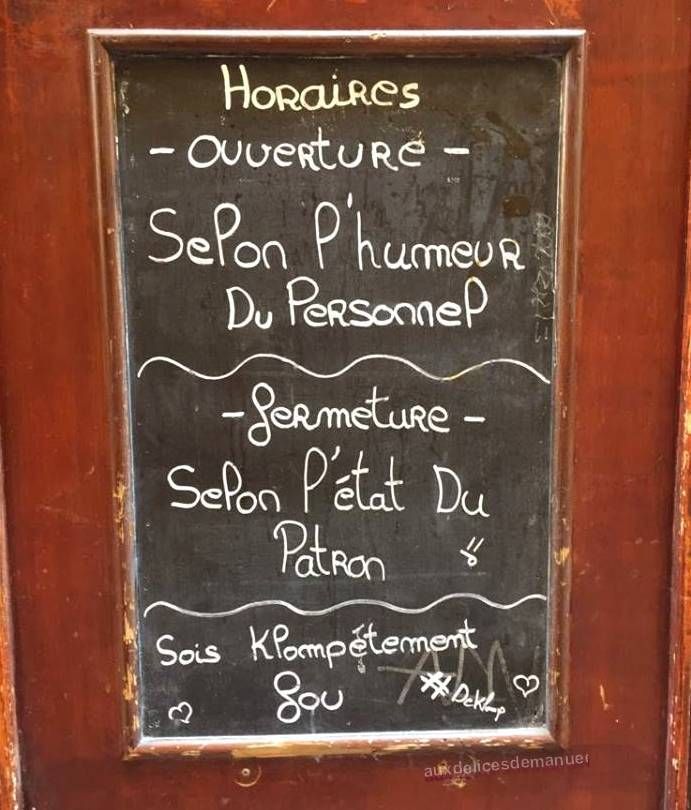 Horaires
- Ouverture -
Selon l'humeur
Du Personnel
- fermeture -
Selon l'état Du
Patron
Sois Klompètement
fou
auxdelicesdemanue